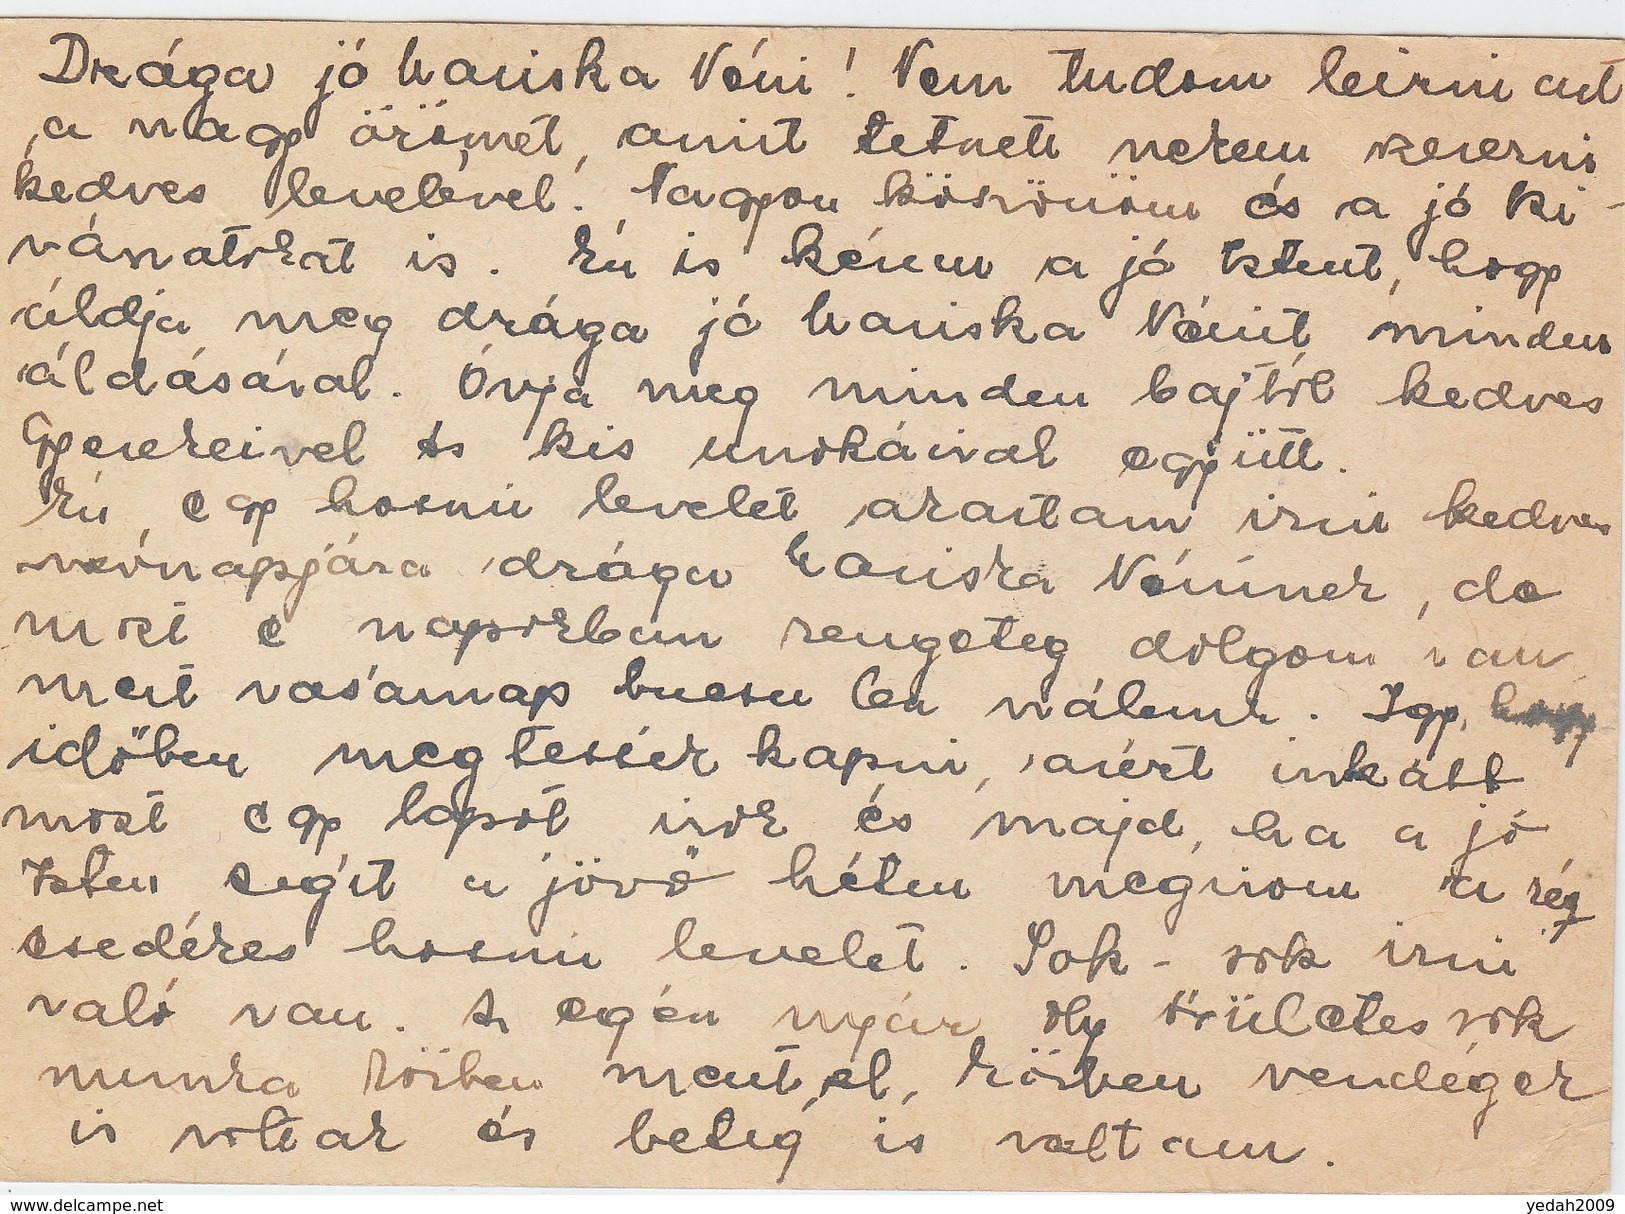 Drága jó Mariska Néni! Nem tudom leirni azt
a nagy örömet, amit tetszett nekem szerezni
kedves levelével. Nagyon köszönöm és a jó ki-
vánatokat is. Én is kérem a jó Istent, hogy
áldja meg drága jó Mariska Nénit minden
áldásával. Óvja meg minden bajtól kedves
Gyerekeivel és kis unokáival együtt.
Én egy hosszu levelet akartam irni kedves
névnapjára drága Mariska Néninek, de
most e napokban rengeteg dolgom van
mert vasárnap bucsu lesz nálunk. Igy, hogy
időben meg tessék kapni, azért inkább
most egy lapot irok és majd, ha a jó
Isten segit a jövő héten megirom a rég
esedékes hosszu levelet. Sok - sok irni
való van. Az egén nyár oly örületes sok
munka közben ment el, közben vendégek
is voltak és beteg is voltam.
yedah2009
http://www.delcampe.net